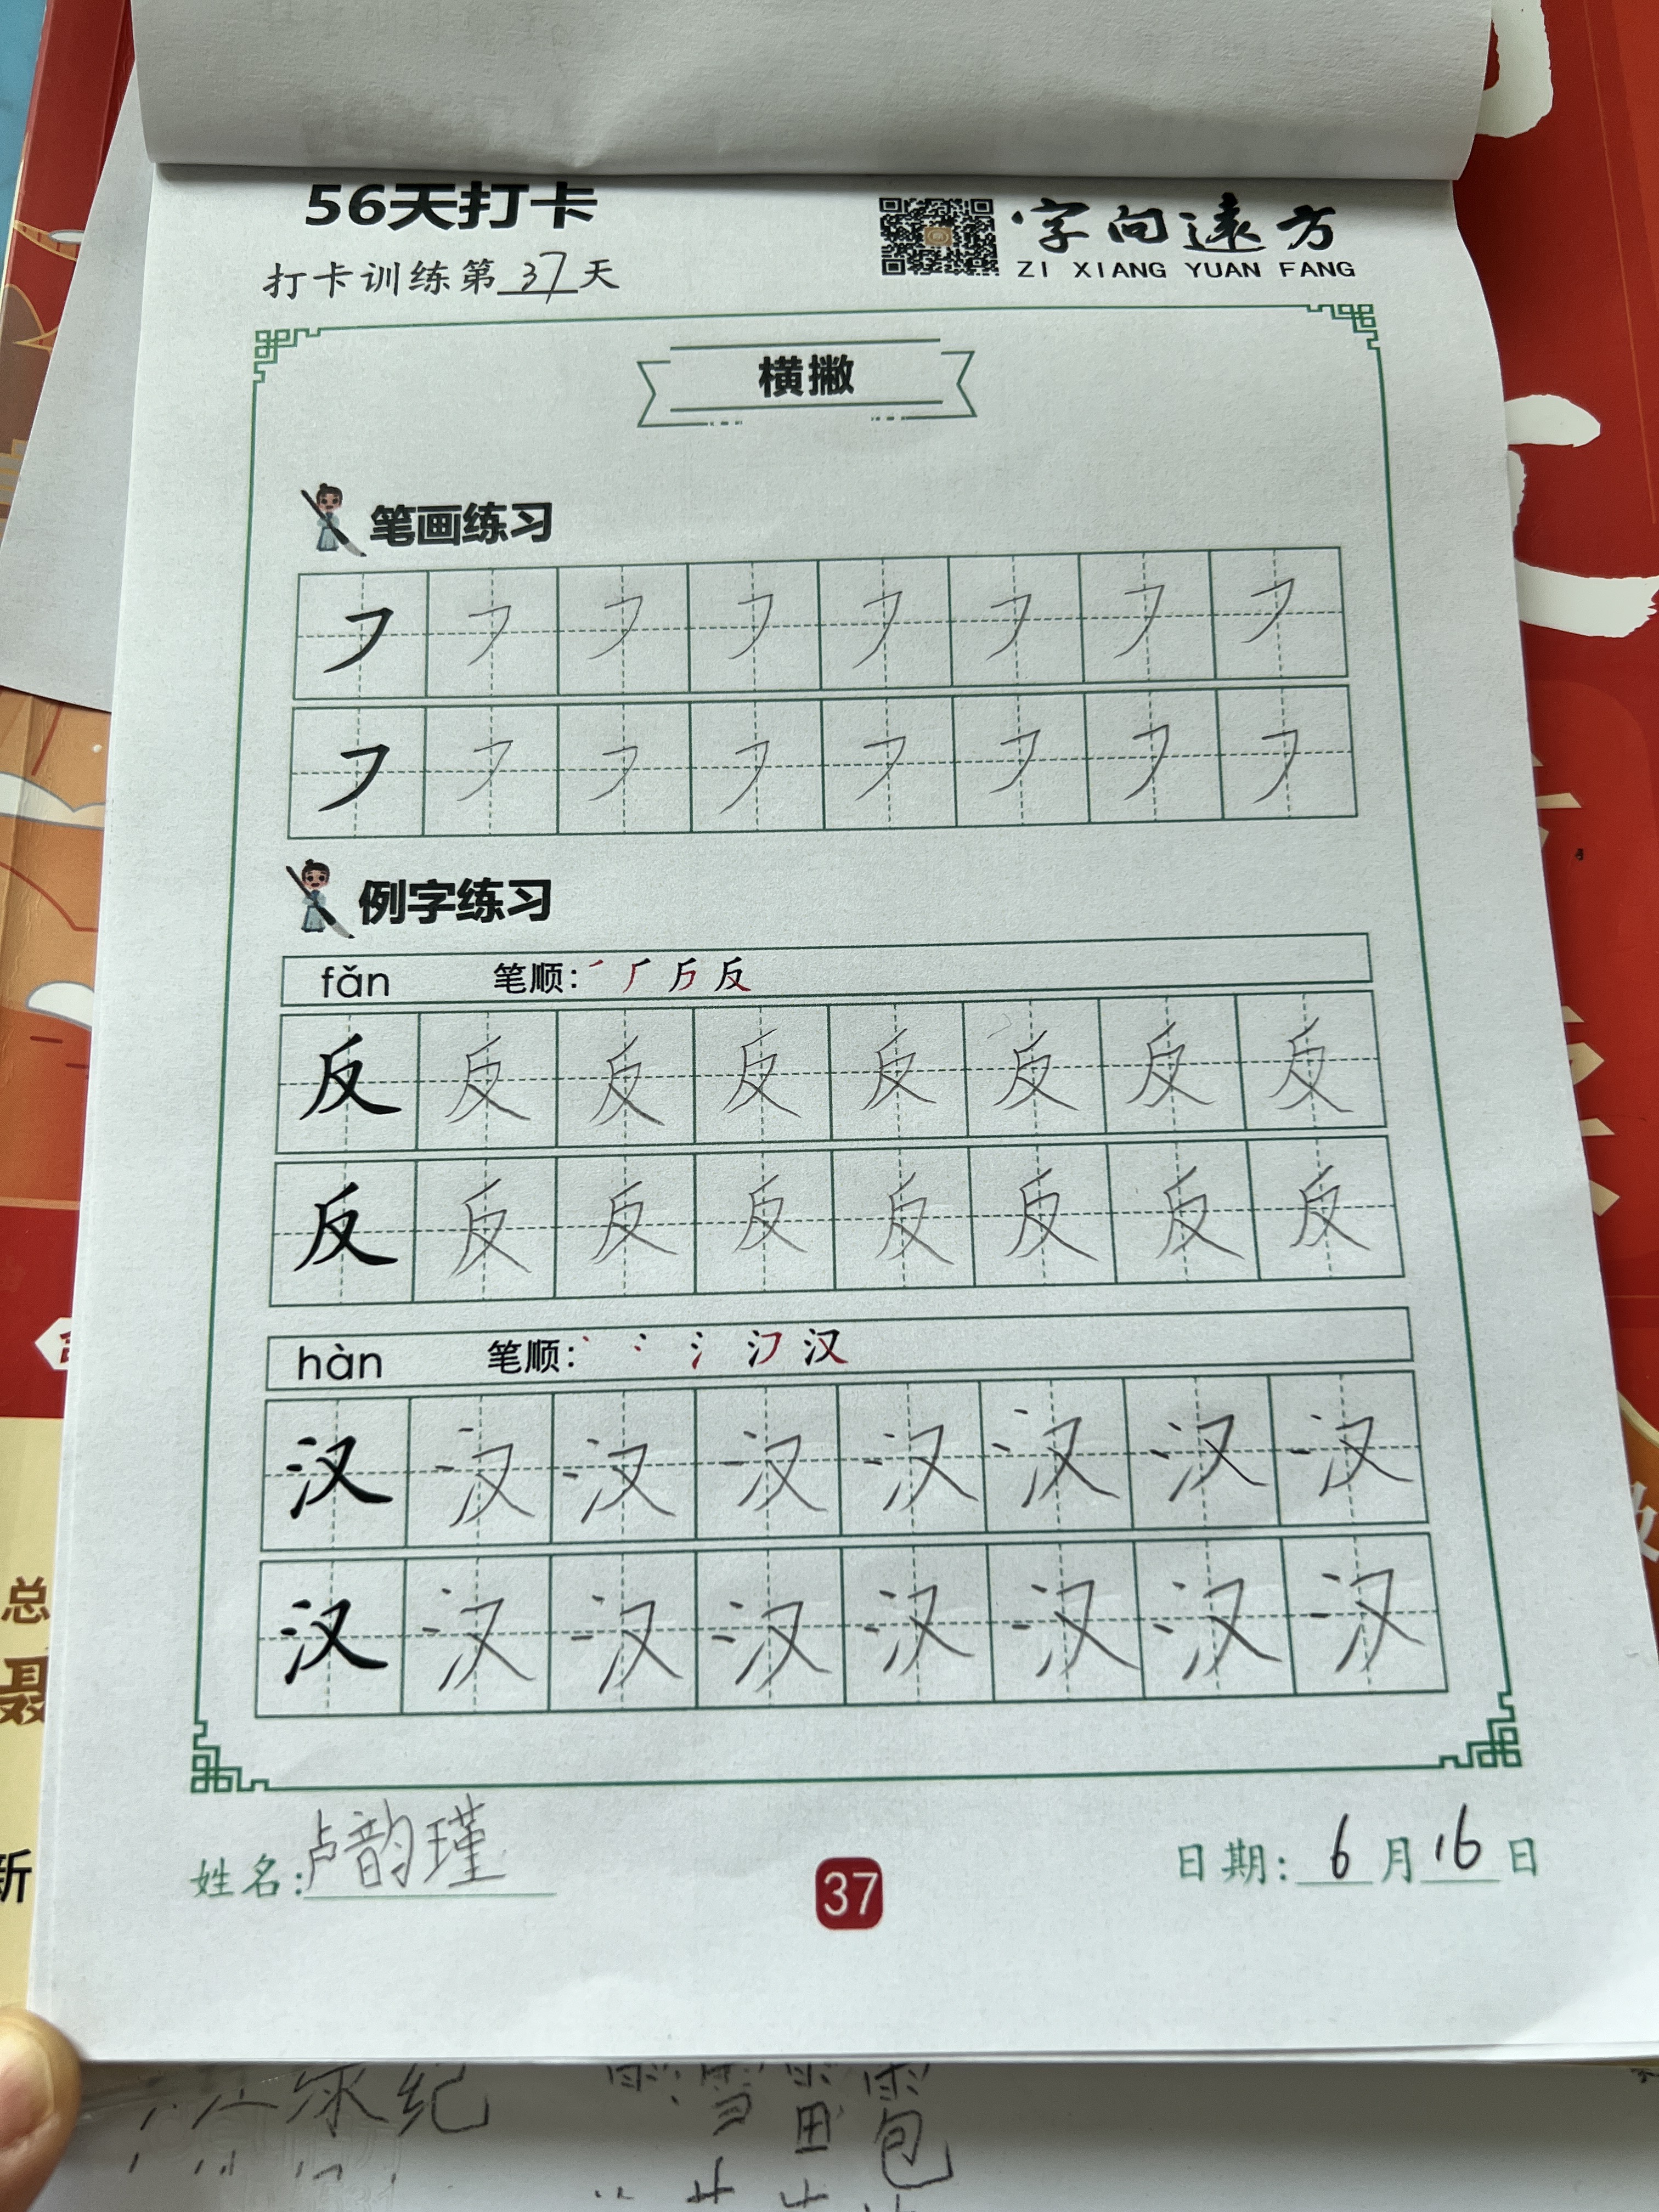 56天打卡
字向遠方
打卡训练第37天
ZI XIANG YUAN FANG
横撇
笔画练习
㇇㇇㇇㇇㇇㇇㇇㇇
㇇㇇㇇㇇㇇㇇㇇㇇
例字练习
fǎn 笔顺: 反
反反反反反反反反
反反反反反反反反
hàn 笔顺: 汉
汉汉汉汉汉汉汉汉
汉汉汉汉汉汉汉汉
姓名:卢韵瑾
37
日期:6月16日
总
新
纪
雪雷雹